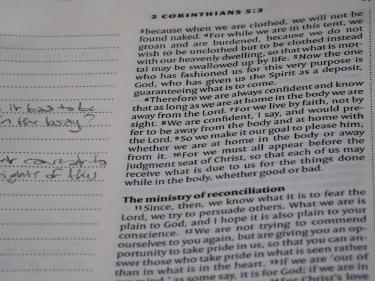 2 CORINTHIANS 5:3
³because when we are clothed, we will not be
found naked. ⁴For while we are in this tent, we
groan and are burdened, because we do not
wish to be unclothed but to be clothed instead
with our heavenly dwelling, so that what is mor-
tal may be swallowed up by life. ⁵Now the one
who has fashioned us for this very purpose is
God, who has given us the Spirit as a deposit,
guaranteeing what is to come.
⁶Therefore we are always confident and know
that as long as we are at home in the body we are
away from the Lord. ⁷For we live by faith, not by
sight. ⁸We are confident, I say, and would pre-
fer to be away from the body and at home with
the Lord. ⁹So we make it our goal to please him,
whether we are at home in the body or away
from it. ¹⁰For we must all appear before the
judgment seat of Christ, so that each of us may
receive what is due to us for the things done
while in the body, whether good or bad.
The ministry of reconciliation
¹¹Since, then, we know what it is to fear the
Lord, we try to persuade others. What we are is
plain to God, and I hope it is also plain to your
conscience. ¹²We are not trying to commend
ourselves to you again, but are giving you an op-
portunity to take pride in us, so that you can an-
swer those who take pride in what is seen rather
than in what is in the heart. ¹³If we are 'out of
mind' as some say, it is for God; if we are in
Christ's love
it has to be
in the body?